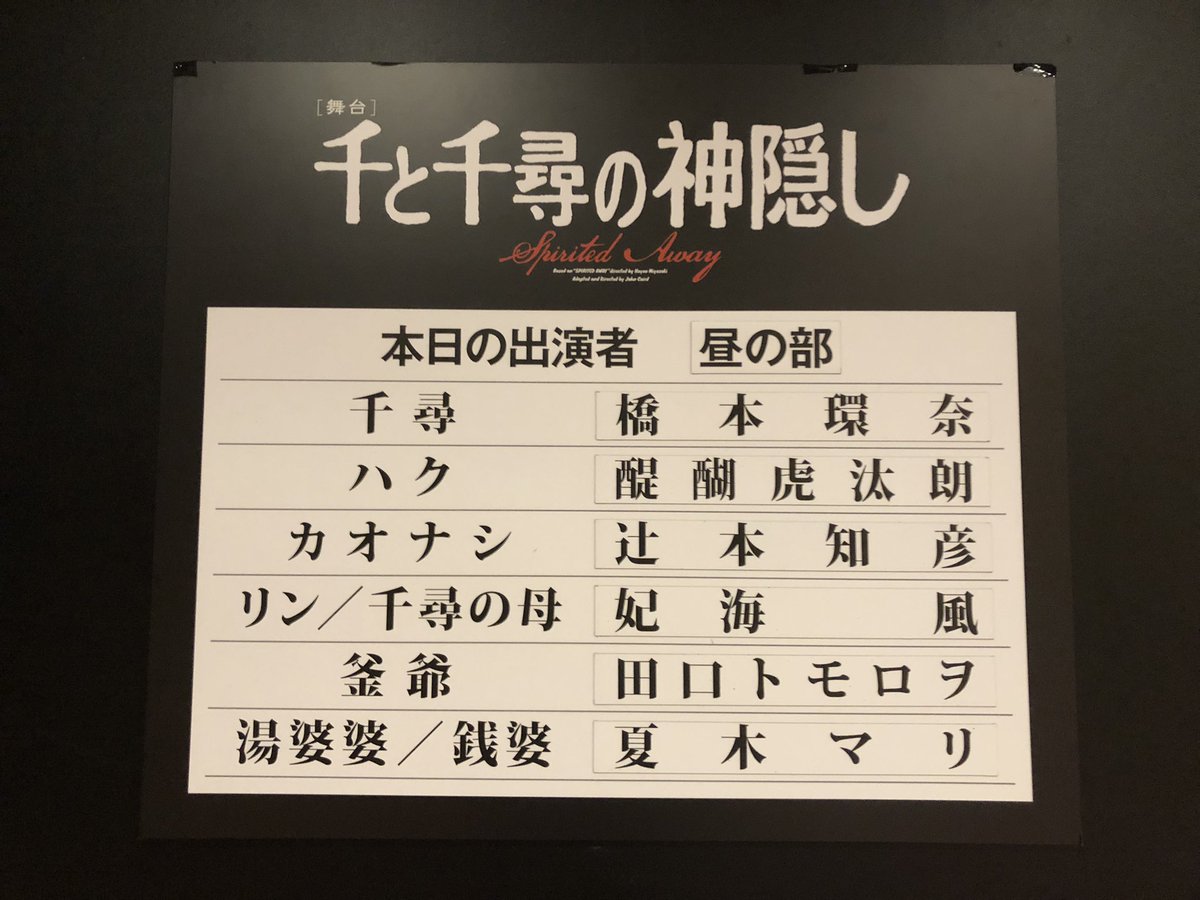 [舞台]
千と千尋の神隠し
Spirited Away
Based on "SPIRITED AWAY" directed by Hayao Miyazaki
Adapted and Directed by John Caird
本日の出演者 昼の部
千尋 橋本環奈
ハク 醍醐虎汰朗
カオナシ 辻本知彦
リン/千尋の母 妃海 風
釜爺 田口トモロヲ
湯婆婆/銭婆 夏木マリ